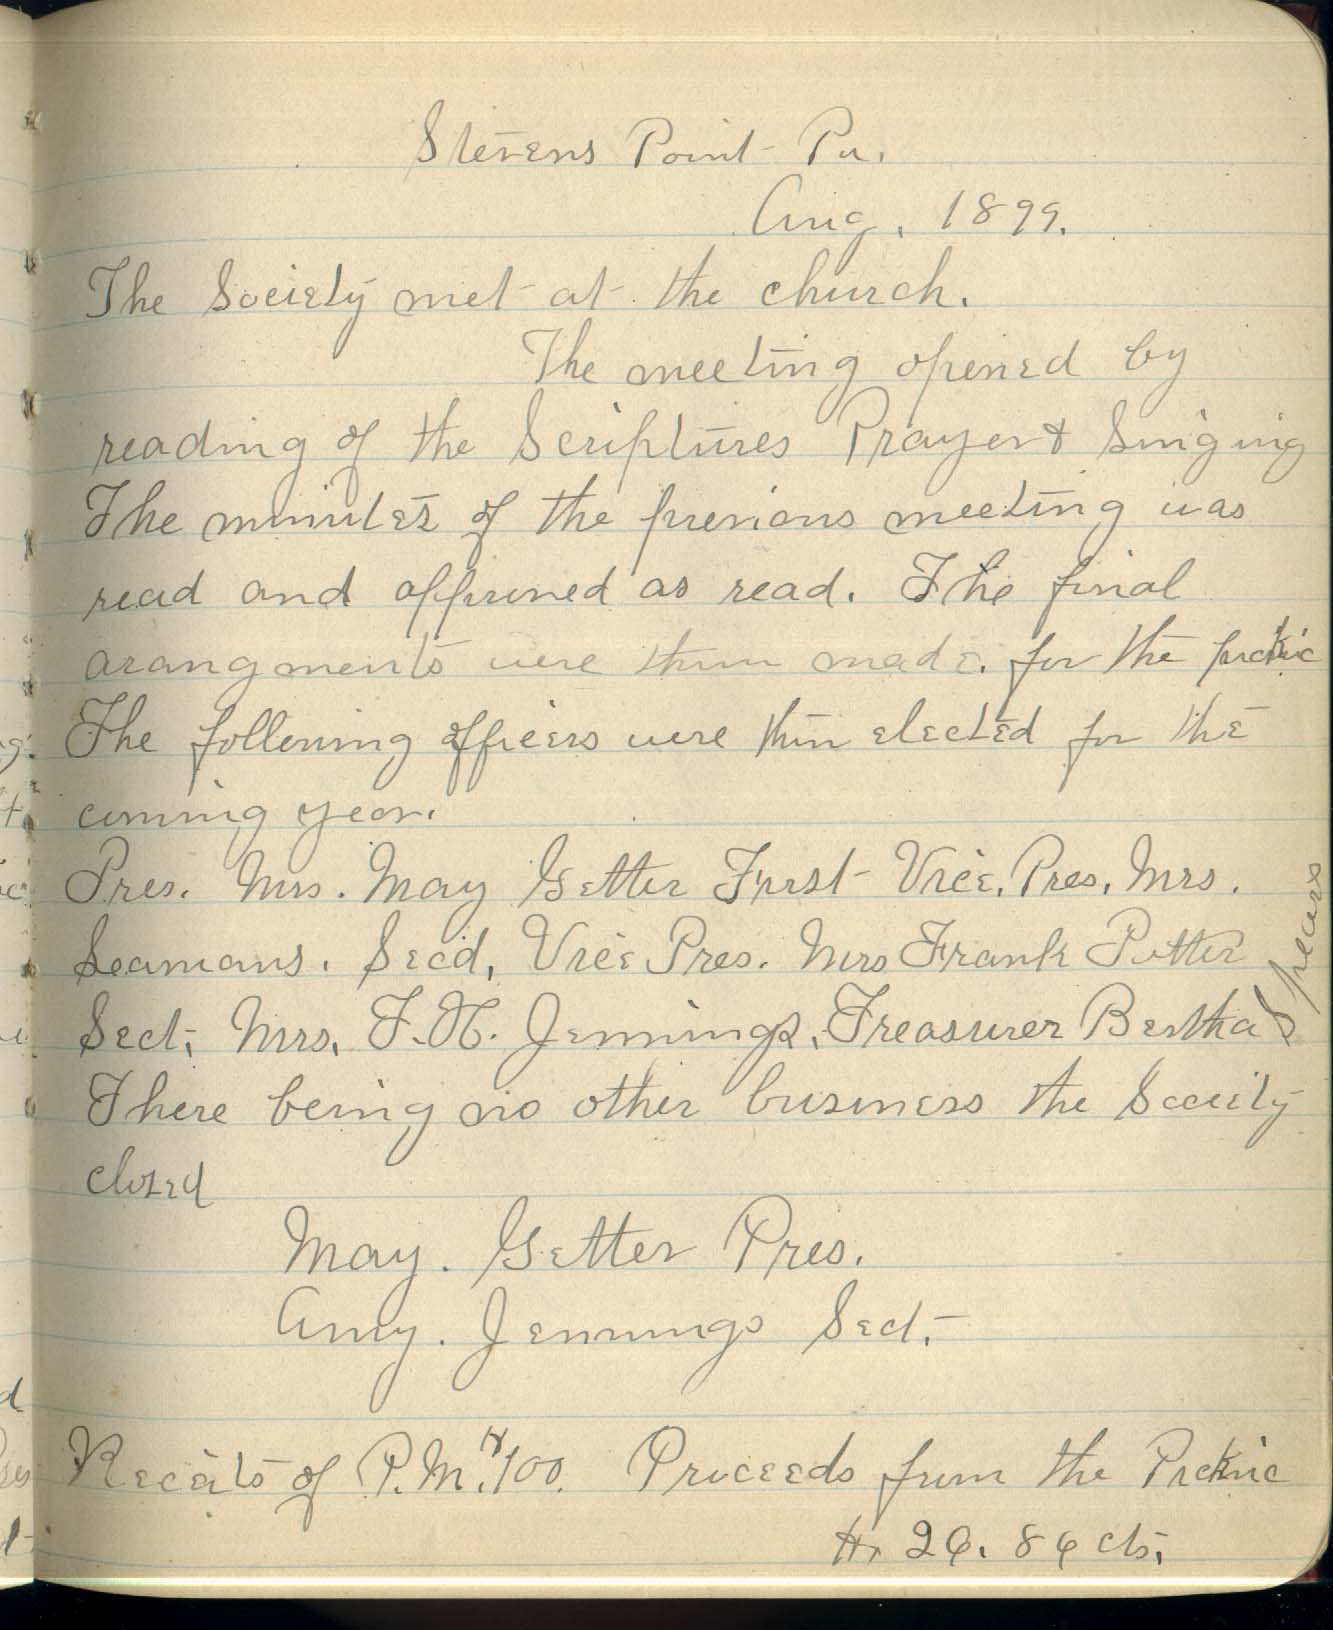 Stevens Point Pa.
Aug. 1899.
The Society met at the church.
The meeting opened by
reading of the Scriptures Prayer & Singing
The minutes of the previous meeting was
read and approved as read. The final
arangments were then made. for the picknic
The following officers were then elected for the
coming year.
Pres. Mrs. May Getter First Vice, Pres, Mrs.
Seamans. Sec'd, Vice Pres. Mrs Frank Potter
Sect, Mrs. F. H. Jennings, Treasurer Bertha Spears
There being no other business the Society
closed
May. Getter Pres.
Amy. Jennings Sect.
Receits of P.M. $1.00. Proceeds from the Picknic
$26.86 cts.